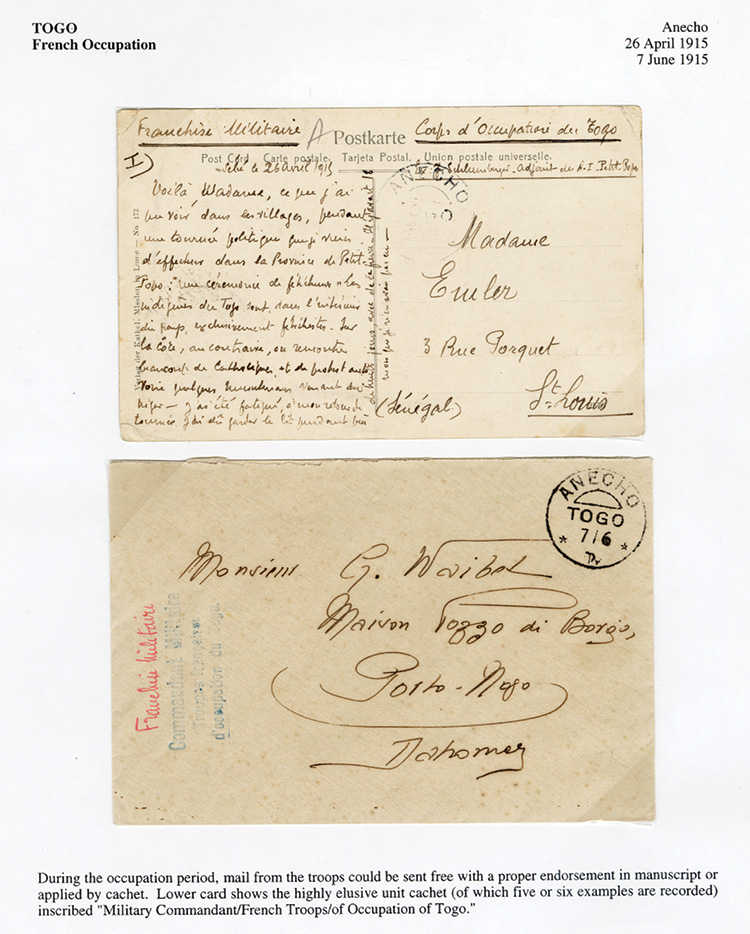 TOGO
French Occupation
Anecho
26 April 1915
7 June 1915
Franchise Militaire
A
Postkarte
Corps d'Occupation du Togo
Post Card. Carte postale. Tarjeta Postal. Union postale universelle.
le 26 avril 1915
Adjoint des A.I. Petit-Popo
H)
ANECHO
Voilà Madame, ce que j'ai
pu voir dans les villages, pendant
une tournée politique que je viens
d'effectuer dans la Province de Petit-
Popo: "une cérémonie de féticheurs" Les
indigènes du Togo sont, dans l'intérieur
du pays, exclusivement fétichistes. Sur
la Côte, au contraire, on rencontre
beaucoup de Catholiques et de protestants
quelques musulmans venant du
Niger — J'ai été fatigué, à mon retour de
tournée. J'ai dû garder le lit pendant
Verlag der Kathol. Mission in Lome — No. 172
Madame
Emler
3 Rue Porquet
St. Louis
(Sénégal)
ANECHO
TOGO
7/6
Monsieur G.
Maison Pozzo di Borgo,
Porto-Novo
Dahomey
Franchise Militaire
Commandant Militaire
Troupes françaises
d'occupation du Togo
During the occupation period, mail from the troops could be sent free with a proper endorsement in manuscript or
applied by cachet. Lower card shows the highly elusive unit cachet (of which five or six examples are recorded)
inscribed "Military Commandant/French Troops/of Occupation of Togo."